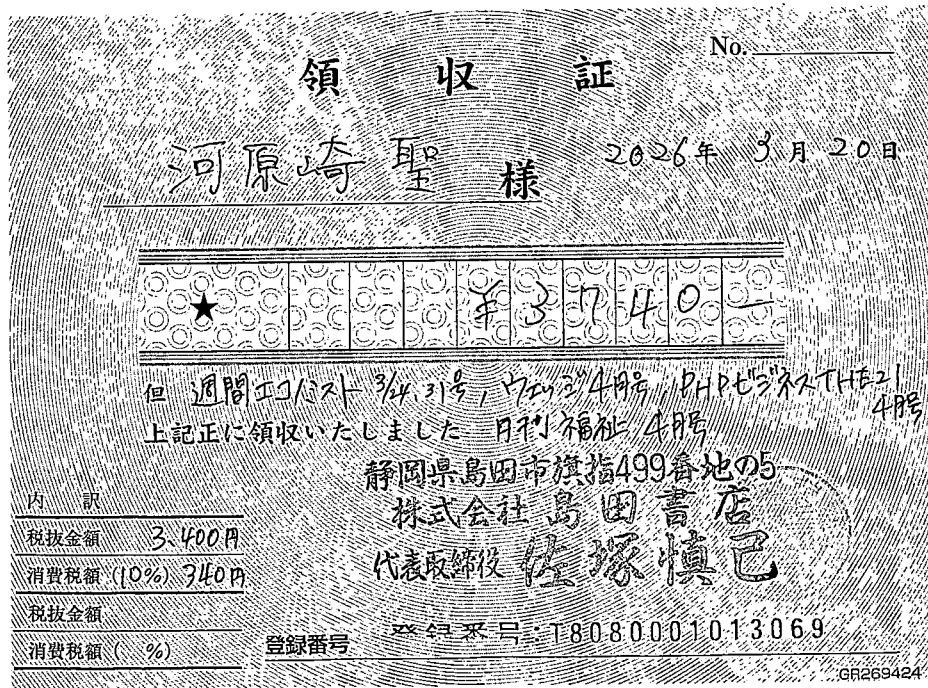 No.
領収証
河原崎 聖 様
2026年 3月 20日
★ ¥3740-
但 週間エコノミスト 3/24,31号, ウェッジ4月号, PHPビジネスTHE21
4月号
上記正に領収いたしました 月刊福祉 4月号
静岡県島田市旗指499番地の5
株式会社 島田書店
代表取締役 佐塚慎己
内 訳
税抜金額 3,400円
消費税額 (10%) 340円
税抜金額
消費税額 ( %)
登録番号 登録番号:T8080001013069
GR269424